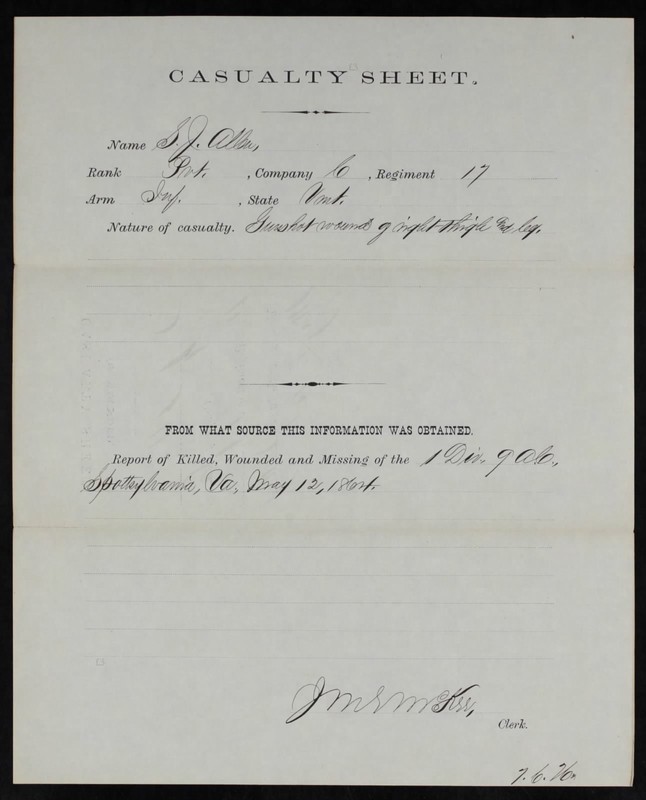 CASUALTY SHEET.
Name S. J. Allen,
Rank Pvt. , Company C , Regiment 17
Arm Inf. , State Vmt.
Nature of casualty. Gunshot wound of right thigh and leg.
FROM WHAT SOURCE THIS INFORMATION WAS OBTAINED.
Report of Killed, Wounded and Missing of the 1 Div. 9 A.C.,
Spottsylvania, Va, May 12, 1864.
McKee,
Clerk.
7. 6. 76